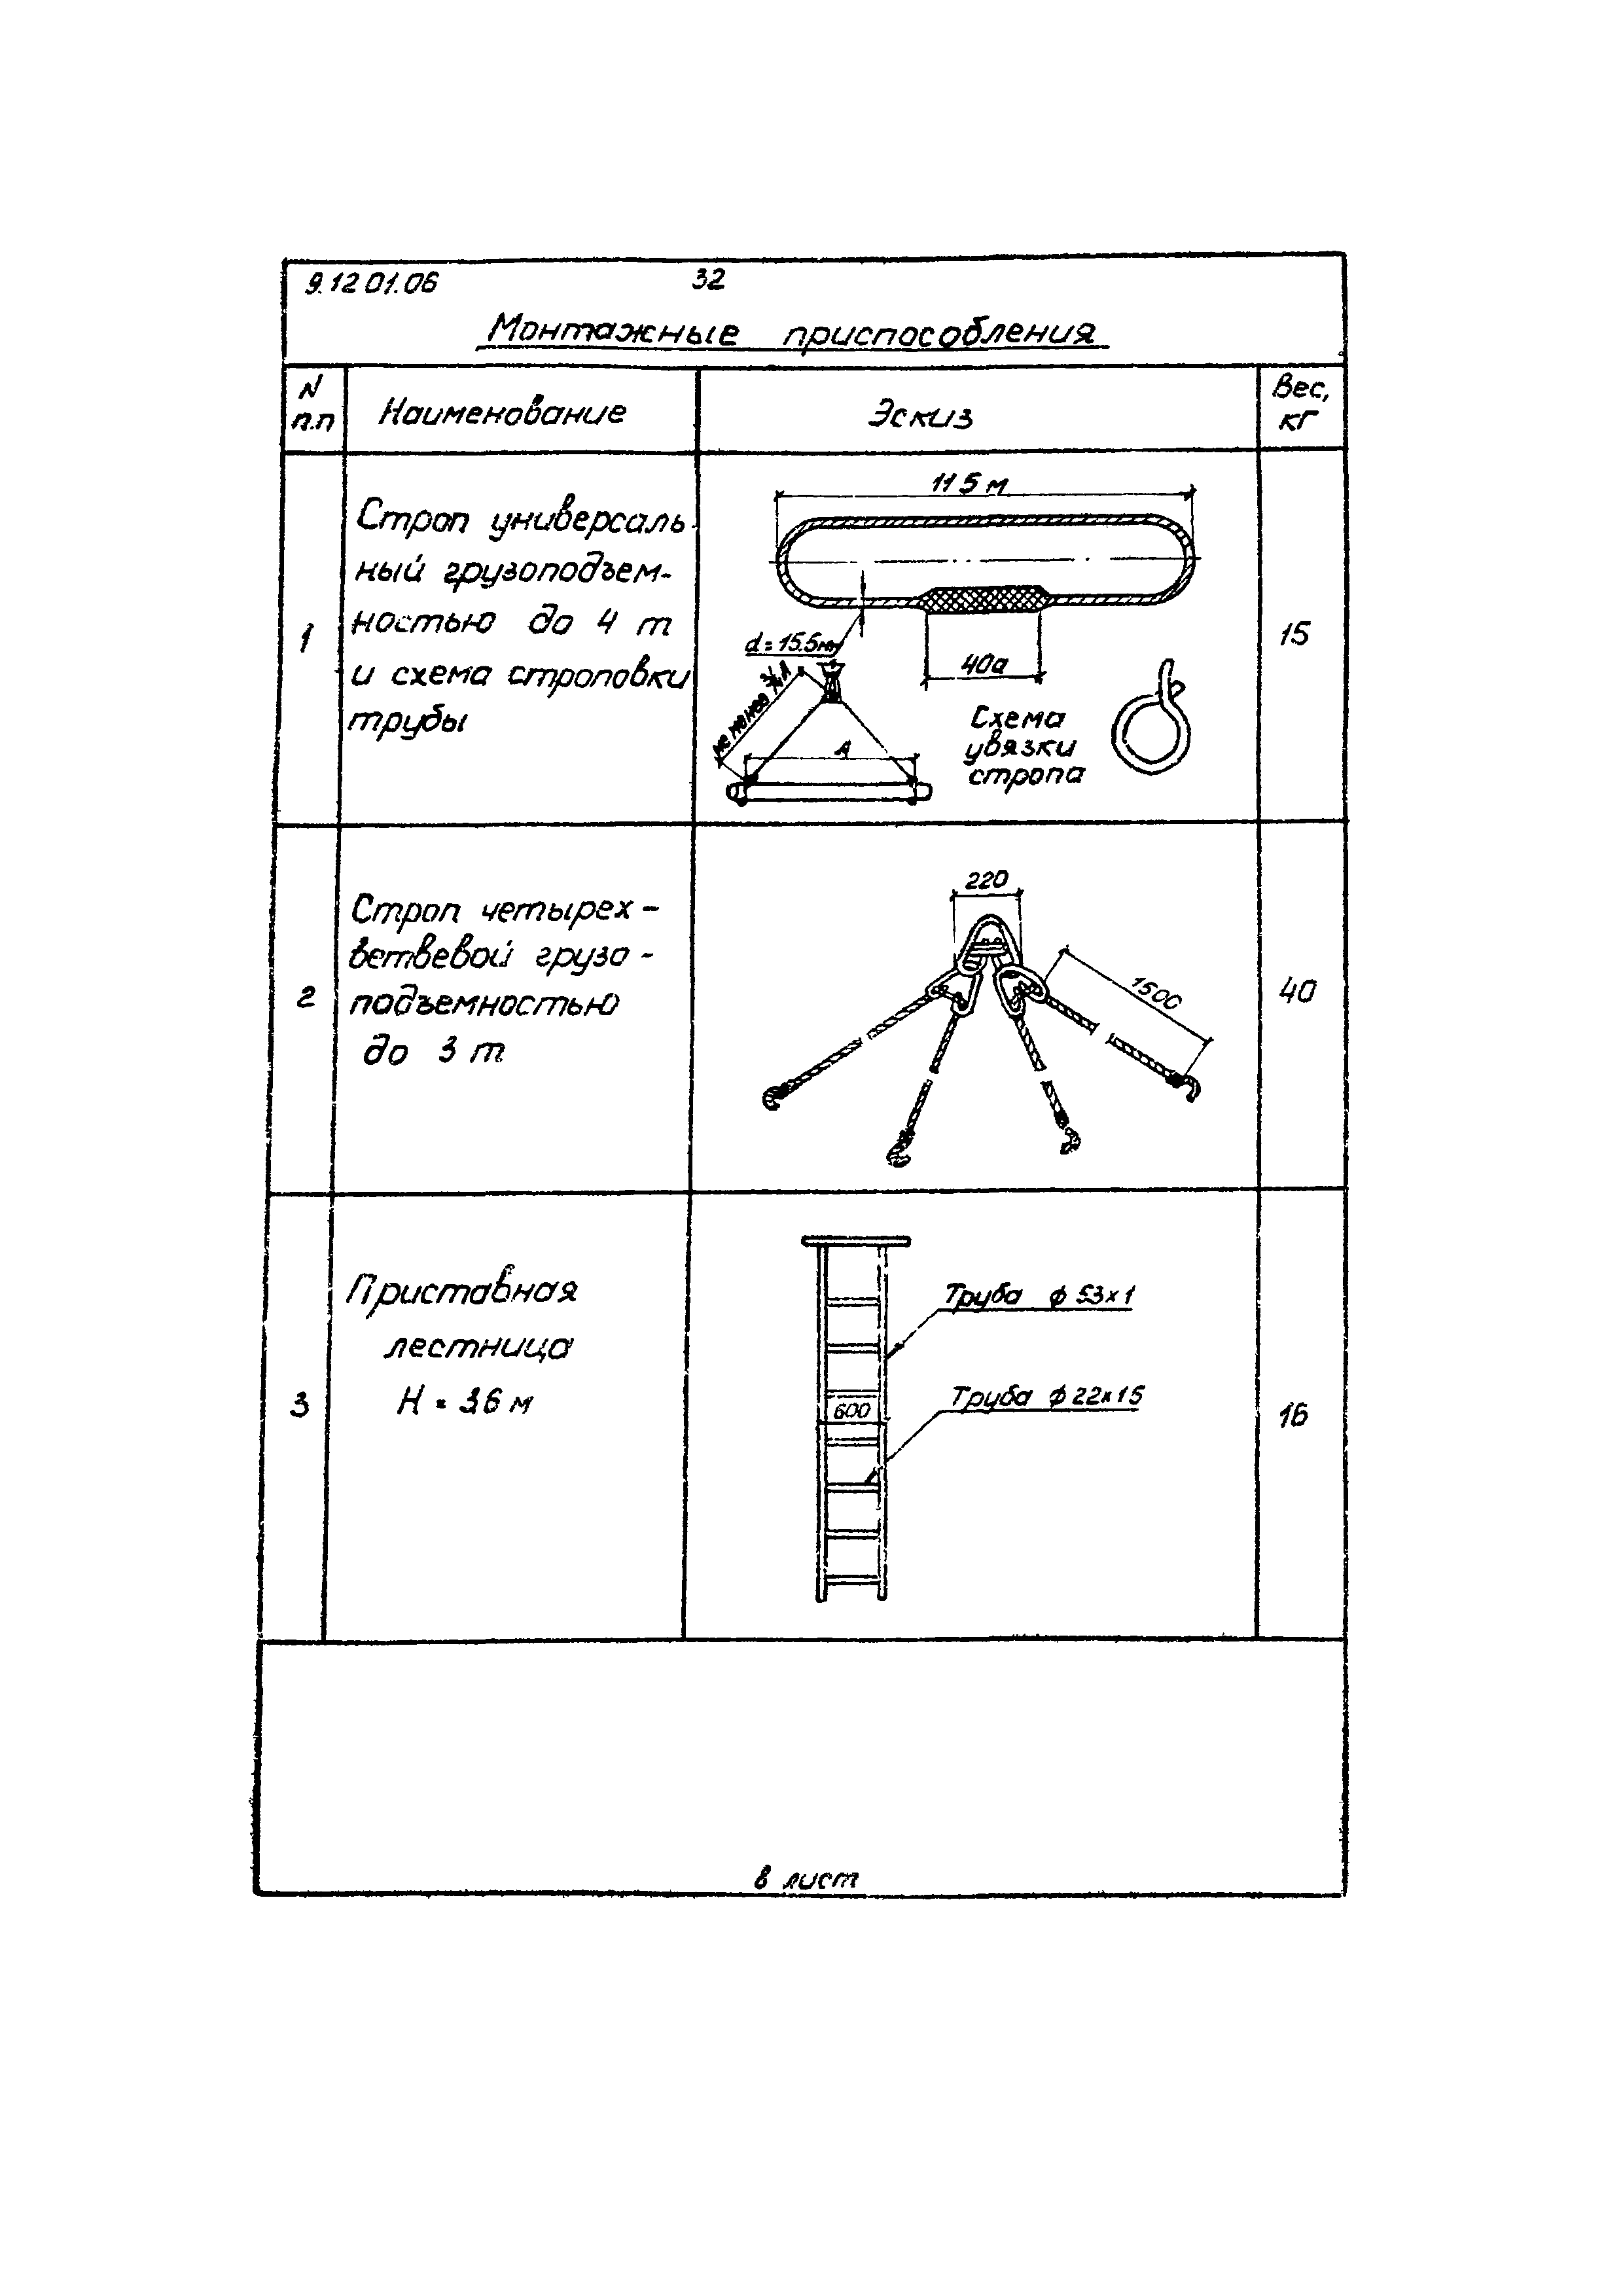 9.12 01.06
32
Монтажные приспособления
N п.п
Наименование
Эскиз
Вес, кг
1
Строп универсаль
ный грузоподъем-
ностью до 4 т
и схема строповки
трубы
11 5 м
d = 15.5мм
40d
не менее 3/4 А
А
Схема
увязки
стропа
15
2
Строп четырех-
ветвевой грузо-
подъемностью
до 3 т
220
1500
40
3
Приставная
лестница
Н = 3.6 м
Труба ф 53×1
Труба ф 22×15
600
16
8 лист